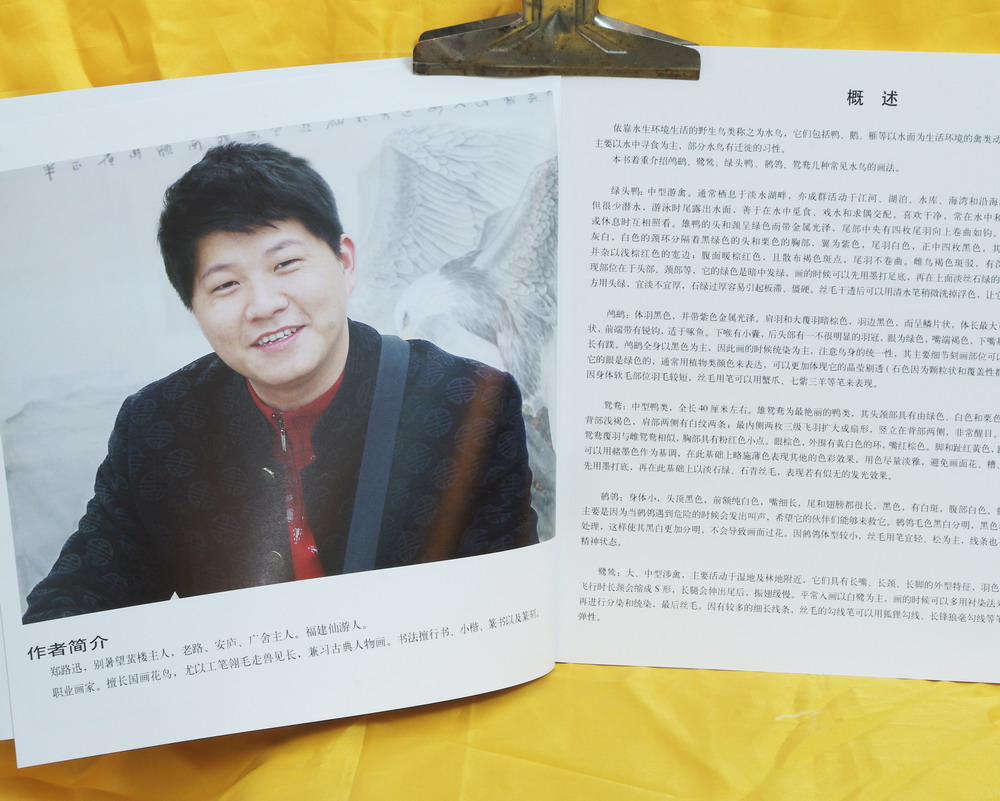 作者简介
郑路迅，别署望蜚楼主人，老路、安庐、广舍主人。福建仙游人。
职业画家。擅长国画花鸟，尤以工笔翎毛走兽见长，兼习古典人物画。书法擅行书、小楷、篆书以及篆刻。
概 述
依靠水生环境生活的野生鸟类称之为水鸟，它们包括鸭、鹅、雁等以水面为生活环境的禽类动
主要以水中寻食为主，部分水鸟有迁徙的习性。
本书着重介绍鸬鹚、鹭鸶、绿头鸭、鹡鸰、鸳鸯几种常见水鸟的画法。
绿头鸭：中型游禽。通常栖息于淡水湖畔，亦成群活动于江河、湖泊、水库、海湾和沿海
但很少潜水，游泳时尾露出水面，善于在水中觅食、戏水和求偶交配。喜欢干净，常在水中和
或休息时互相照看。雄鸭的头和颈呈绿色而带金属光泽，尾部中央有四枚尾羽向上卷曲如钩。
灰白，白色的颈环分隔着黑绿色的头和栗色的胸部，翼为紫色，尾羽白色，正中四枚黑色，其
并杂以浅棕红色的宽边；腹面暖棕红色，且散布褐色斑点，尾羽不卷曲。雌鸟褐色斑驳，有深
现部位在于头部、颈部等，它的绿色是暗中发绿，画的时候可以先用墨打足底，再在上面淡丝石绿的
方用头绿，宜淡不宜厚，石绿过厚容易引起板滞、僵硬。丝毛干透后可以用清水笔稍微洗掉浮色，让它
鸬鹚：体羽黑色，并带紫色金属光泽。肩羽和大覆羽暗棕色，羽边黑色，而呈鳞片状，体长最大
状，前端带有锐钩，适于啄鱼。下喉有小囊，后头部有一不很明显的羽冠，眼为绿色，嘴端褐色，下嘴
长有蹼。鸬鹚全身以黑色为主，因此画的时候统染为主，注意鸟身的统一性，其主要细节刻画部位可以
它的眼是绿色的，通常用植物类颜色来表达，可以更加体现它的晶莹剔透（石色因为颗粒状和覆盖性都
因身体软毛部位羽毛较短，丝毛用笔可以用蟹爪、七紫三羊等笔来表现。
鸳鸯：中型鸭类，全长 40 厘米左右。雄鸳鸯为最艳丽的鸭类，其头颈部具有由绿色、白色和栗色
背部浅褐色，肩部两侧有白纹两条；最内侧两枚三级飞羽扩大成扇形，竖立在背部两侧，非常醒目。
鸳鸯覆羽与雌鸳鸯相似，胸部具有粉红色小点。眼棕色，外围有黄白色的环，嘴红棕色。脚和趾红黄色，
可以用赭墨色作为基调，在此基础上略施薄色表现其他的色彩效果，用色尽量淡雅，避免画面花、糟、
先用墨打底，再在此基础上以淡石绿、石青丝毛，表现若有似无的发光效果。
鹡鸰：身体小，头顶黑色，前额纯白色，嘴细长，尾和翅膀都很长，黑色，有白斑，腹部白色，
主要是因为当鹡鸰遇到危险的时候会发出叫声，希望它的伙伴们能够来救它。鹡鸰毛色黑白分明，黑色
处理，这样使其黑白更加分明，不会导致画面过花。因鹡鸰体型较小，丝毛用笔宜轻、松为主，线条也
精神状态。
鹭鸶：大、中型涉禽，主要活动于湿地及林地附近，它们具有长嘴、长颈、长脚的外型特征，羽色
飞行时长颈会缩成 S 形，长腿会伸出尾后，振翅缓慢。平常入画以白鹭为主，画的时候可以多用衬染法
再进行分染和统染，最后丝毛。因有较多的细长线条，丝毛的勾线笔可以用狐狸勾线、长锋狼毫勾线等
弹性。